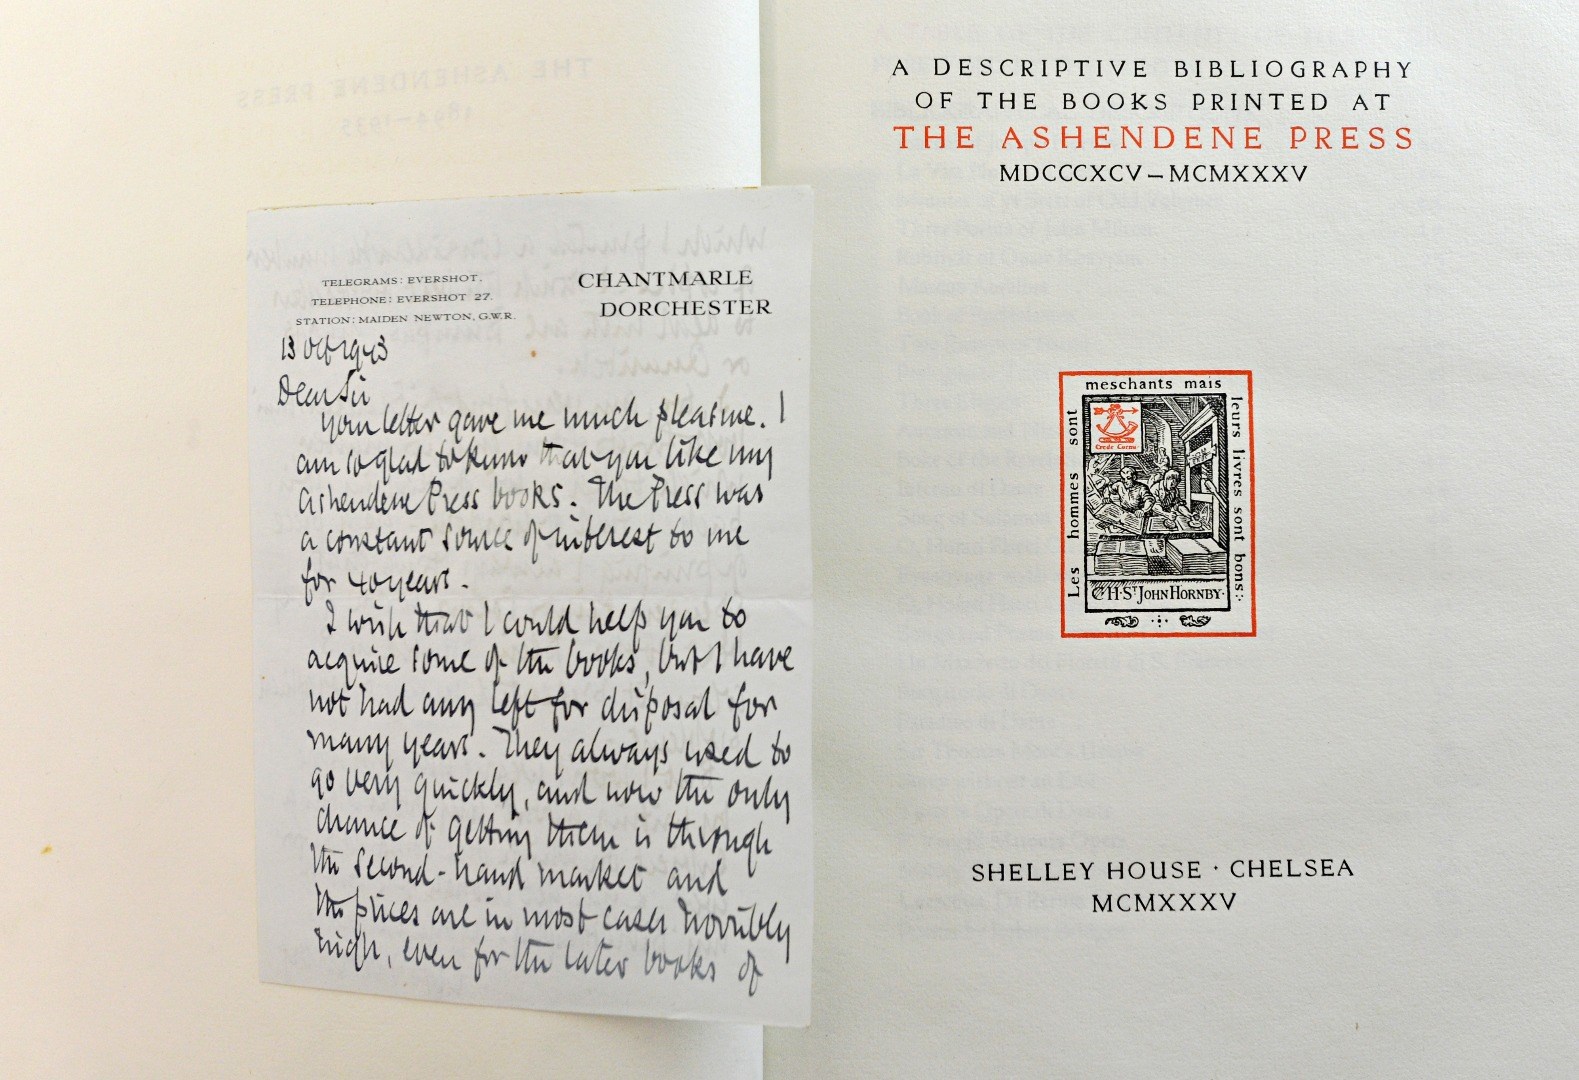 THE ASHENDENE PRESS
1894–1935
TELEGRAMS: EVERSHOT.
TELEPHONE: EVERSHOT 27.
STATION: MAIDEN NEWTON, G.W.R.
CHANTMARLE
DORCHESTER
13 Oct 1943
Dear Sir
Your letter gave me much pleasure. I
am so glad to know that you like my
Ashendene Press books. The Press was
a constant source of interest to me
for 40 years.
I wish that I could help you to
acquire some of the books, but I have
not had any left for disposal for
many years. They always used to
go very quickly, and now the only
chance of getting them is through
the second-hand market and
the prices are in most cases horribly
high, even for the later books of
A DESCRIPTIVE BIBLIOGRAPHY
OF THE BOOKS PRINTED AT
THE ASHENDENE PRESS
MDCCCXCV–MCMXXXV
Les hommes sont
meschants mais
leurs livres sont bons
Crede Cornu
C·H·St JOHN HORNBY·
SHELLEY HOUSE · CHELSEA
MCMXXXV